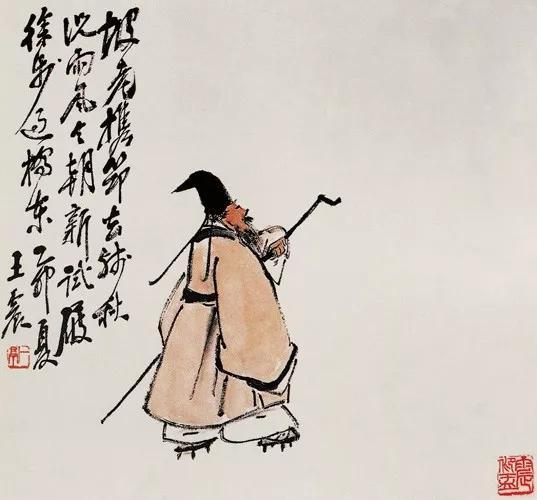 坡老攜筇去殘秋
況雨風今朝新試屐
徐步過橋東 乙卯夏
王震
一亭